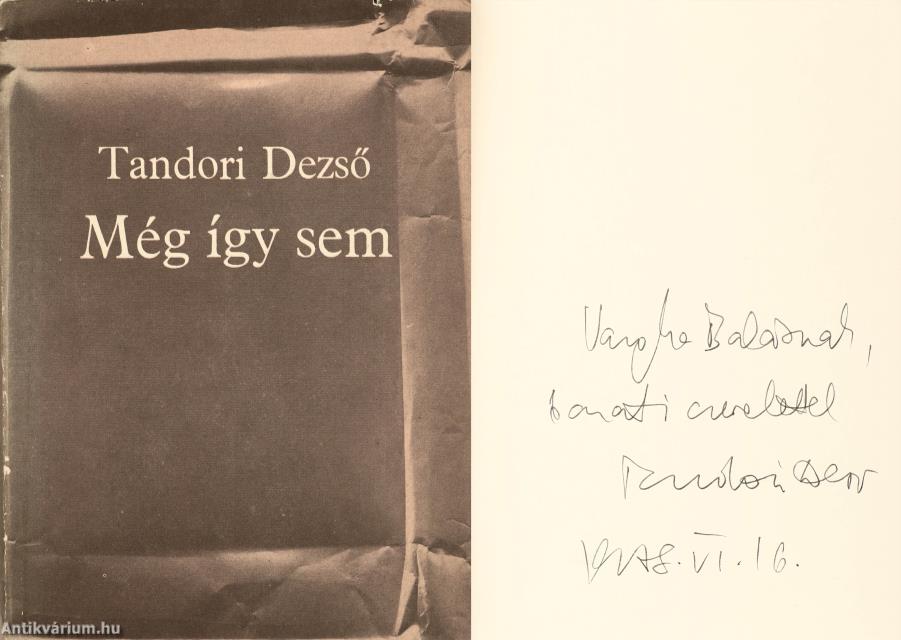 Tandori Dezső
Még így sem
Vargha Balázsnak,
baráti szeretettel
Tandori Dezső
1978. VI. 16.
Antikvárium.hu